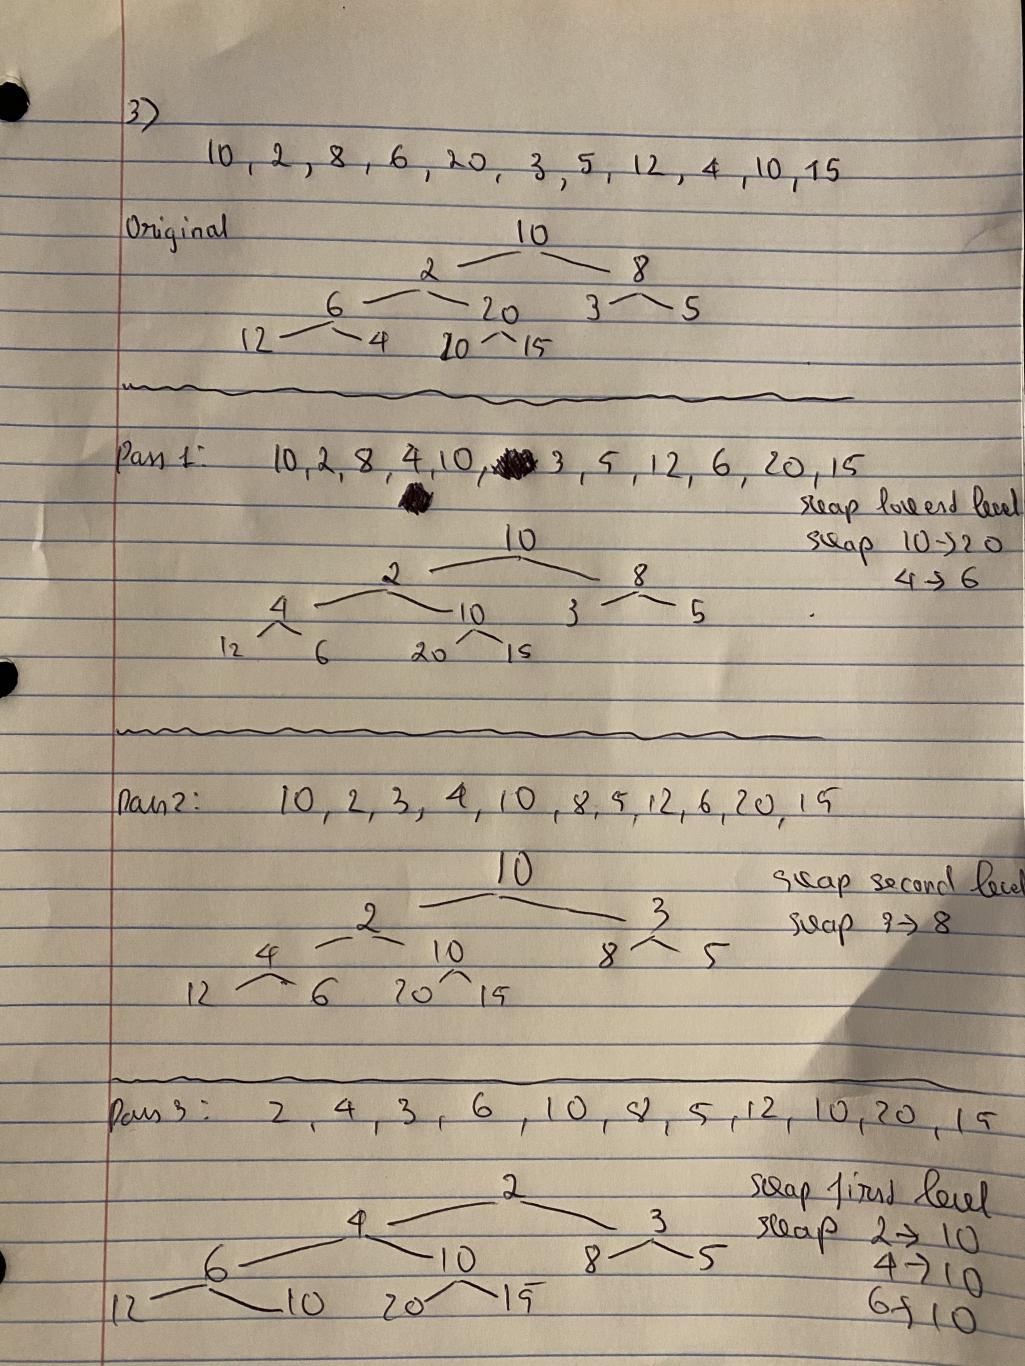 3)
10, 2, 8, 6, 20, 3, 5, 12, 4, 10, 15
Original
10
2 8
6 20 3 5
12 4 10 15
Pass 1: 10, 2, 8, 4, 10, 3, 5, 12, 6, 20, 15
swap lowest level
10
swap 10→20
2 8
4→6
4 10 3 5
12 6 20 15
Pass 2: 10, 2, 3, 4, 10, 8, 5, 12, 6, 20, 15
10
swap second level
2 3
swap 3→8
4 10 8 5
12 6 20 15
Pass 3: 2, 4, 3, 6, 10, 8, 5, 12, 10, 20, 15
2
swap first level
4 3
swap 2→10
6 10 8 5
4→10
12 10 20 15
6→10